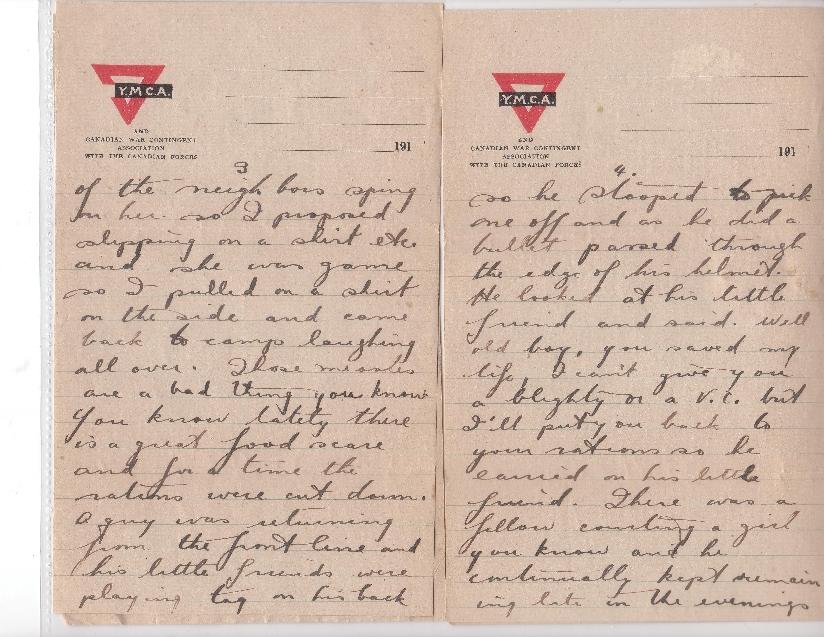 Y.M.C.A.
AND
CANADIAN WAR CONTINGENT
ASSOCIATION
WITH THE CANADIAN FORCES
191
3
of the neighbors sping
on her. so I proposed
slipping on a shirt etc
and she was game
so I pulled on a shirt
on the side and came
back to camp laughing
all over. Those measles
are a bad thing you know
You know lately there
is a great food scare
and for a time the
rations were cut down.
A guy was returning
from the front line and
his little friends were
playing tag on his back
Y.M.C.A.
AND
CANADIAN WAR CONTINGENT
ASSOCIATION
WITH THE CANADIAN FORCES
191
4.
so he stooped to pick
one off and as he did a
bullet passed through
the edge of his helmet.
He looked at his little
friend and said. Well
old boy, you saved my
life, I can't give you
a blighty or a V.C. but
I'll put you back to
your rations so he
carried on his little
friend. There was a
fellow courting a girl
you know and he
continually kept remain
ing late in the evenings